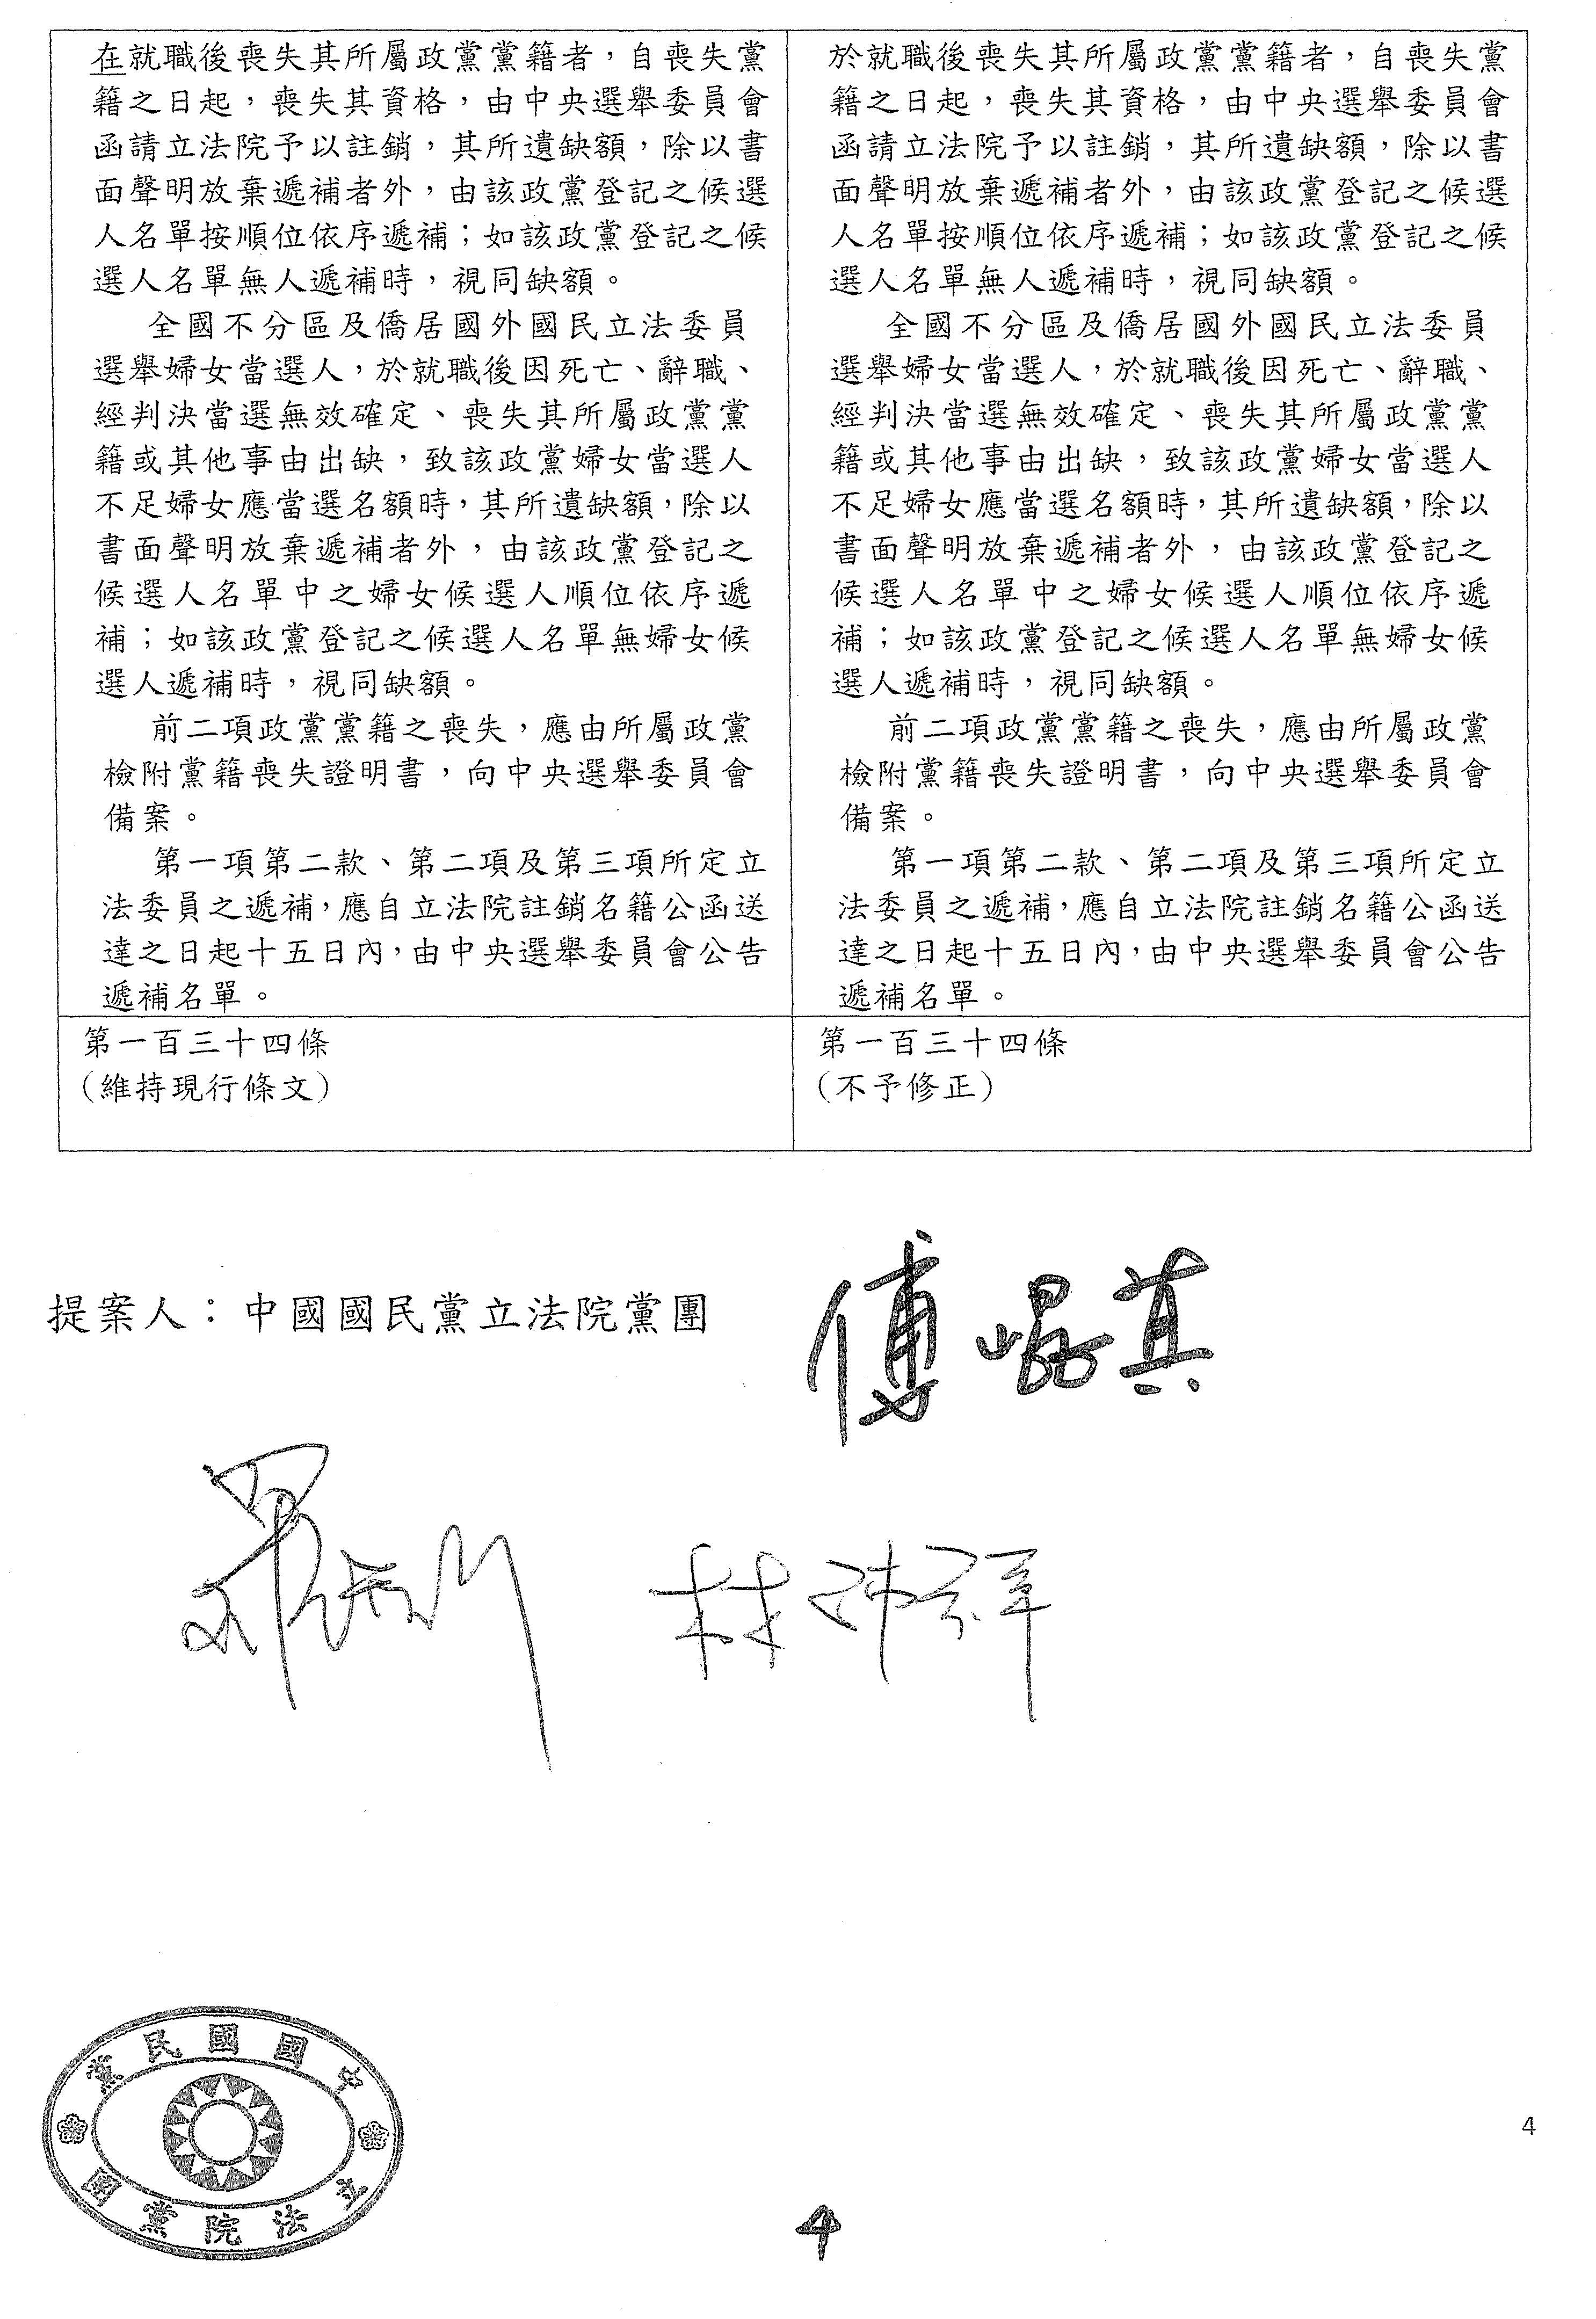 在就職後喪失其所屬政黨黨籍者，自喪失黨
籍之日起，喪失其資格，由中央選舉委員會
函請立法院予以註銷，其所遺缺額，除以書
面聲明放棄遞補者外，由該政黨登記之候選
人名單按順位依序遞補；如該政黨登記之候
選人名單無人遞補時，視同缺額。
全國不分區及僑居國外國民立法委員
選舉婦女當選人，於就職後因死亡、辭職、
經判決當選無效確定、喪失其所屬政黨黨
籍或其他事由出缺，致該政黨婦女當選人
不足婦女應當選名額時，其所遺缺額，除以
書面聲明放棄遞補者外，由該政黨登記之
候選人名單中之婦女候選人順位依序遞
補；如該政黨登記之候選人名單無婦女候
選人遞補時，視同缺額。
前二項政黨黨籍之喪失，應由所屬政黨
檢附黨籍喪失證明書，向中央選舉委員會
備案。
第一項第二款、第二項及第三項所定立
法委員之遞補，應自立法院註銷名籍公函送
達之日起十五日內，由中央選舉委員會公告
遞補名單。
於就職後喪失其所屬政黨黨籍者，自喪失黨
籍之日起，喪失其資格，由中央選舉委員會
函請立法院予以註銷，其所遺缺額，除以書
面聲明放棄遞補者外，由該政黨登記之候選
人名單按順位依序遞補；如該政黨登記之候
選人名單無人遞補時，視同缺額。
全國不分區及僑居國外國民立法委員
選舉婦女當選人，於就職後因死亡、辭職、
經判決當選無效確定、喪失其所屬政黨黨
籍或其他事由出缺，致該政黨婦女當選人
不足婦女應當選名額時，其所遺缺額，除以
書面聲明放棄遞補者外，由該政黨登記之
候選人名單中之婦女候選人順位依序遞
補；如該政黨登記之候選人名單無婦女候
選人遞補時，視同缺額。
前二項政黨黨籍之喪失，應由所屬政黨
檢附黨籍喪失證明書，向中央選舉委員會
備案。
第一項第二款、第二項及第三項所定立
法委員之遞補，應自立法院註銷名籍公函送
達之日起十五日內，由中央選舉委員會公告
遞補名單。
第一百三十四條
（維持現行條文）
第一百三十四條
（不予修正）
提案人：中國國民黨立法院黨團
傅崐萁
林沛祥
中國國民黨
立法院黨團
4
4